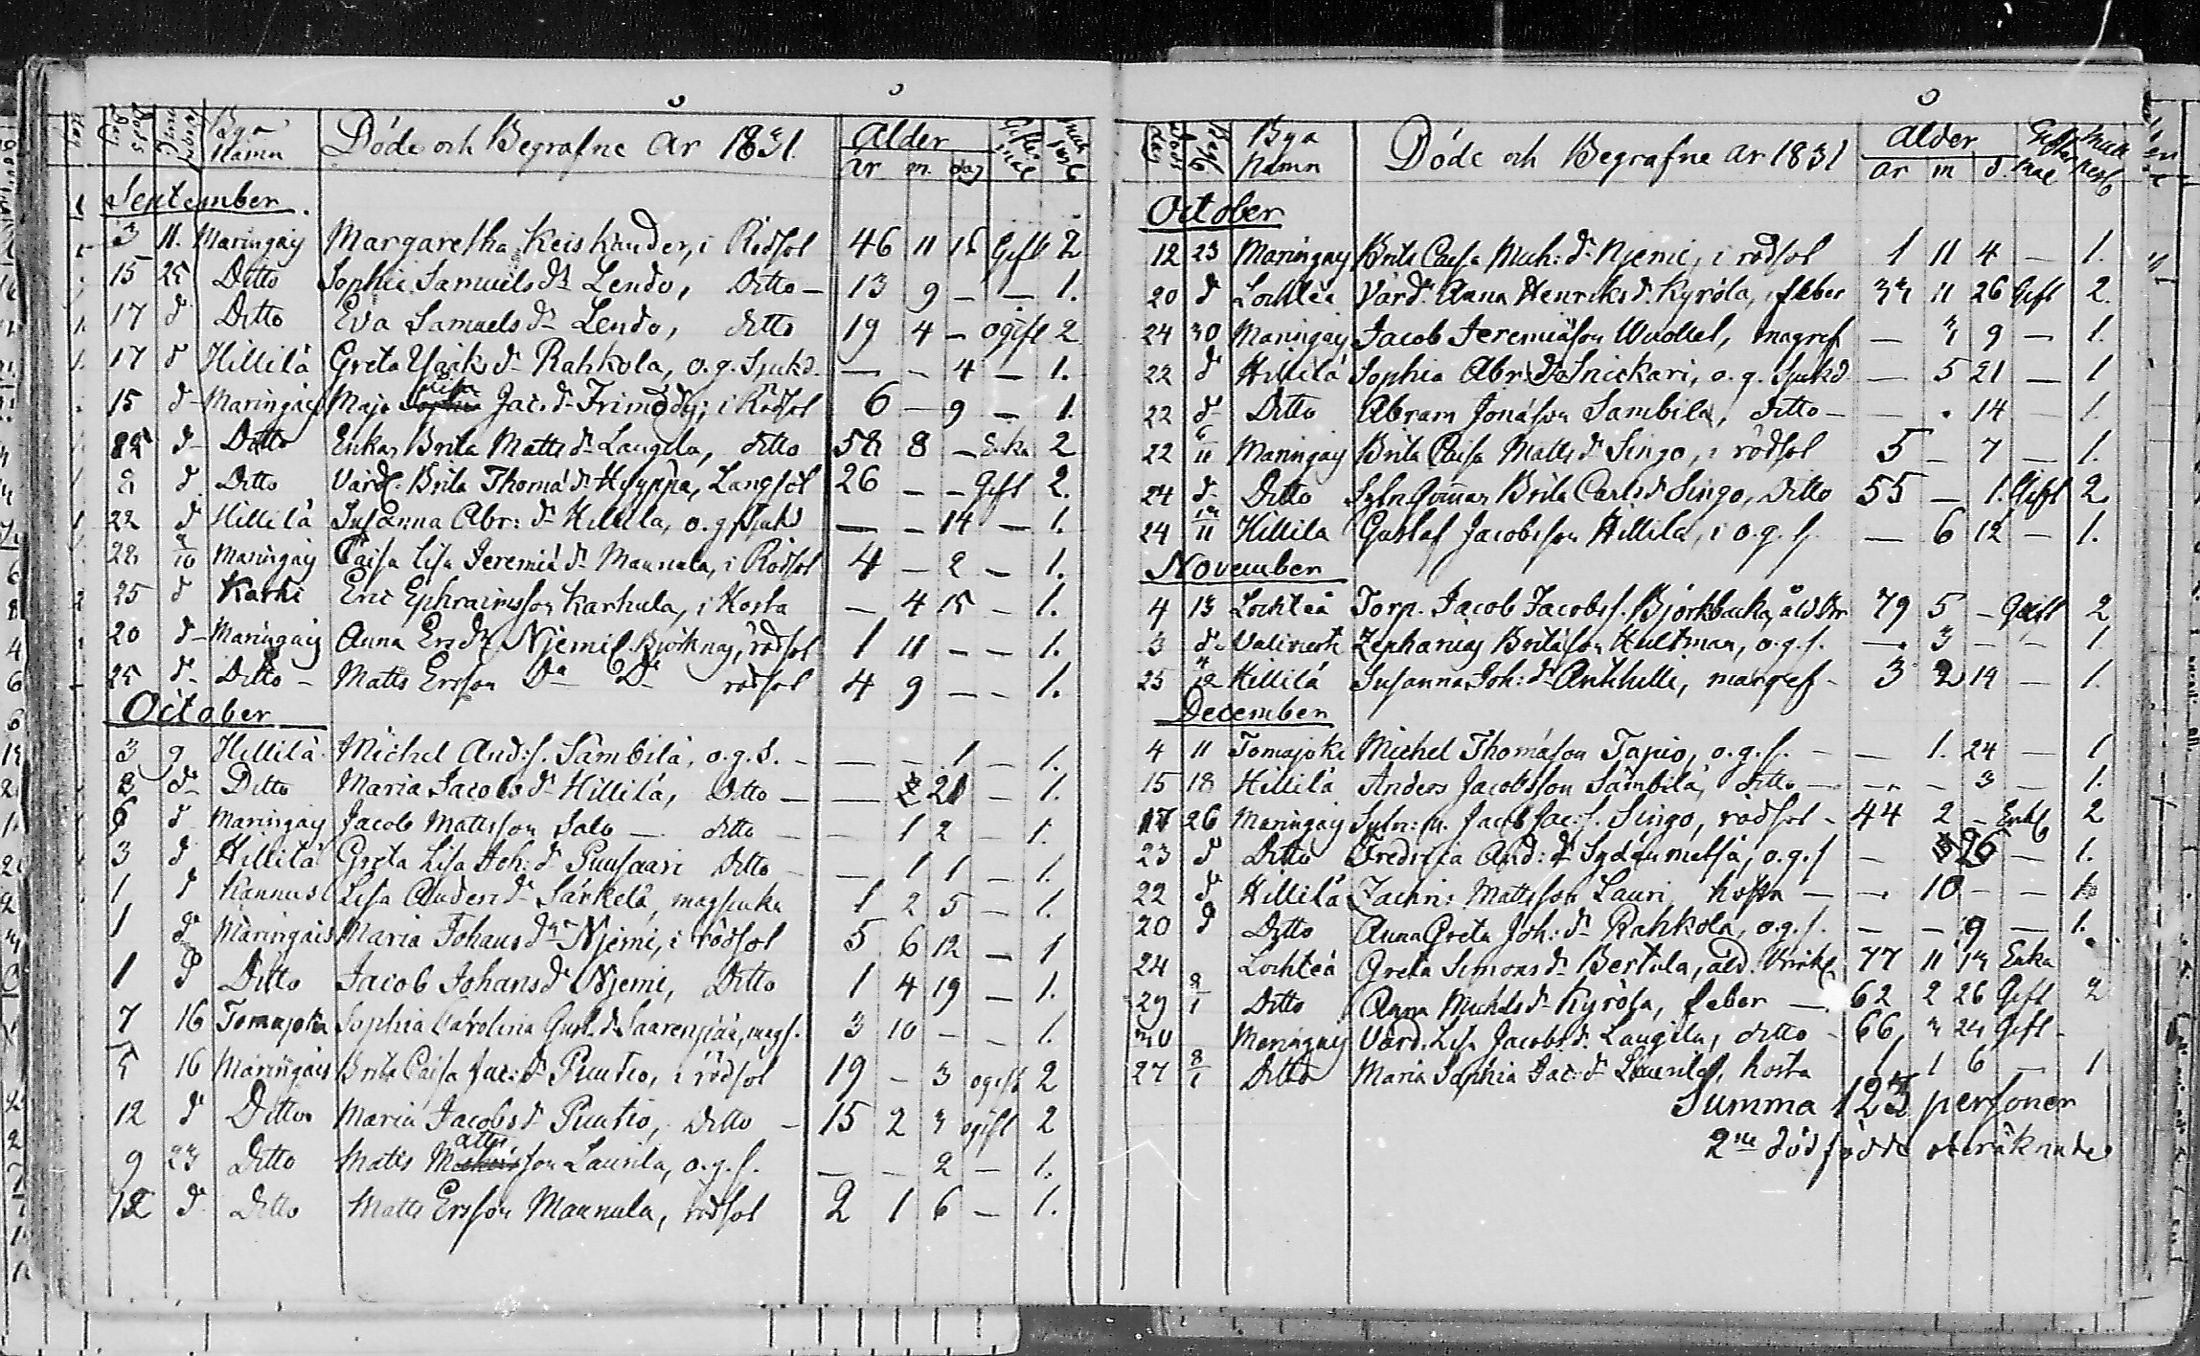 Byа Namn Döde och Begrafne År 1831. Ålder Gifte mål
År m. dag
September
3 11. Maringais Margaretha Keiskander, i Rödsot 46 11 15 Gift 2
15 25 Ditto Sophie Samuels dr Lendo, Ditto — 13 9 — — 1.
17 d Ditto Eva Samuels dr Lendo, ditto 19 4 — ogift 2
17 d Hillilä Greta dr Rahkola, o.g. Sjukd. — — 4 — 1.
15 d Maringais Maja Lisa Jac. dr Frimodig, i Rödsot 6 — 9 — 1.
d Ditto Enkan Brita Matts dr Laugila, ditto 58 8 — Enka 2
8 d Ditto Värd. Brita Thomä dr Hyyppä, Lungsot 26 — — Gift 2.
22 d Hillilä Susanna Abr: dr Hillila, o.g. Sjukd — — 14 — 1.
28 2/10 Maringais Caisa Lisa Jeremiä dr Mannula, i Rödsot 4 — 2 — 1.
25 d Karhi Eric Ephraimsson Karhula, i Hosta — 4 15 — 1.
20 d Maringais Anna Ers dr Njemi rödsot 1 11 — — 1.
25 d Ditto — Matts Ersson Do Do rödsot 4 9 — — 1.
October
3 9 Hillilä Michel And:s. Sämbilä, o.g.S. — — — 1 — 1.
3 d Ditto Maria Jacobs dr Hillilä, Ditto — — 21 — 1.
6 d Maringais Jacob Mattsson Salo — ditto — — 1 2 — 1.
3 d Hillilä Greta Lisa Joh: dr Puusaari Ditto — — 1 1 — 1.
1 d Kannus Lisa Anders dr Särkelä, magsjuka 1 2 5 — 1.
1 d Maringais Maria Johans dr Njemi, i rödsot 5 6 12 — 1
1 d Ditto Jacob Johans dr Njemi, Ditto 1 4 19 — 1.
7 16 Tomajoki Sophia Carolina Gust. dr Saarenpää, mags. 3 10 — — 1.
5 16 Maringais Brita Caisa Jac: dr Puutio, i rödsot 19 — 3 ogift 2
12 d Ditto Maria Jacobs dr Puutio, Ditto — 15 2 3 ogift 2
9 23 Ditto Matts Mattsson Laurila, o.g.s. — — 2 — 1.
12 d Ditto Matts Ersson Mannula, rödsot 2 1 6 — 1.
Bya Namn Döde och Begrafne År 1831 Ålder Gifte mål
År m d.
October
12 23 Maringais Brita Caisa Mich: dr Njemi, i rödsot 1 11 4 — 1.
20 d Lochteå Värd. Anna Henriks dr Kyrölä, i feber 11 26 Gift 2.
24 30 Maringais Jacob Jeremiäson Wuollet, magref — 3 9 — 1.
22 d Hillilä Sophia Abr: dr Snickari, o.g. Sjukd — 5 21 — 1
22 d Ditto Abram Jonäson Sambila, ditto — — . 14 — 1.
22 6/11 Maringais Brita Caisa Matts dr Singo, i rödsot 5 — 7 — 1.
24 d Ditto Brita Carls dr Singo, Ditto 55 — 1. Gift 2
24 /11 Hillila Gustaf Jacobsson Hillila, i o.g.s. — 6 12 — 1.
November
4 13 Lochteå Torp. Jacob Jacobss. Björkbacka, åld. 79 5 — Gift 2
3 d Zacharias Britäson Hultman, o.g.s. — 3 — — 1.
25 4/12 Hillilä Susanna Joh: dr Antthilli, magref — 3 2 14 — 1.
December
4 11 Tomajoki Michel Thomäson Tapio, o.g.s. — — 1. 24 — 1
15 18 Hillilä Anders Jacobsson Sämbilä, ditto — — — 3 — 1.
17 26 Maringais Jacob Jac:s. Singo, rödsot — 44 2 — Enkl 2
23 d Ditto Fredrica And: dr Sydänmetsä, o.g.s — 26 — 1.
22 d Hillilä Zachri: Mattsson Lauri, hosta — — 10 — — 1
20 d Ditto Anna Greta Joh: dr Rahkola, o.g.s. — — 9 — 1.
24 Lochteå Greta Simons dr Bertula, åld. 77 11 Enka
29 8/1 Ditto Anna Michels dr Kyröla, feber — 62 2 26 Gift 2
30 Maringais Värd. Lisa Jacobs dr Laugila, ditto — 66 3 24 Gift —
27 8/1 Ditto Maria Sophia Jac: dr Laurila, hosta 1 1 6 — 1
Summa 125 personer
2ne dödfödde oberäknade